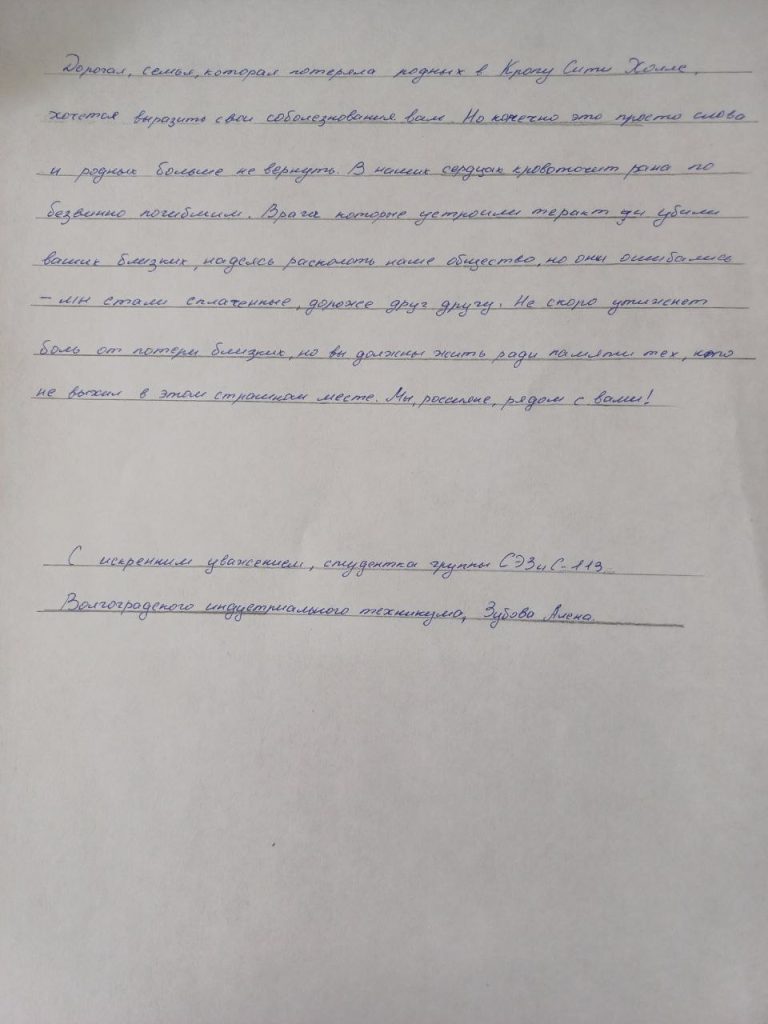 Дорогая, семья, которая потеряла родных в Крокус Сити Холле,
хочется выразить свои соболезнования вам. Но конечно это просто слова
и родных больше не вернуть. В наших сердцах кровоточит рана по
безвинно погибшим. Враги которые устроили теракт и убили
ваших близких, надеясь расколоть наше общество, но они ошибались
- мы стали сплаченные, дороже друг другу. Не скоро утихнет
боль от потери близких, но вы должны жить ради памяти тех, кто
не выжил в этом страшном месте. Мы, россияне, рядом с вами!
С искренним уважением, студентка группы СЭЗиС-113
Волгоградского индустриального техникума, Зубова Алена.